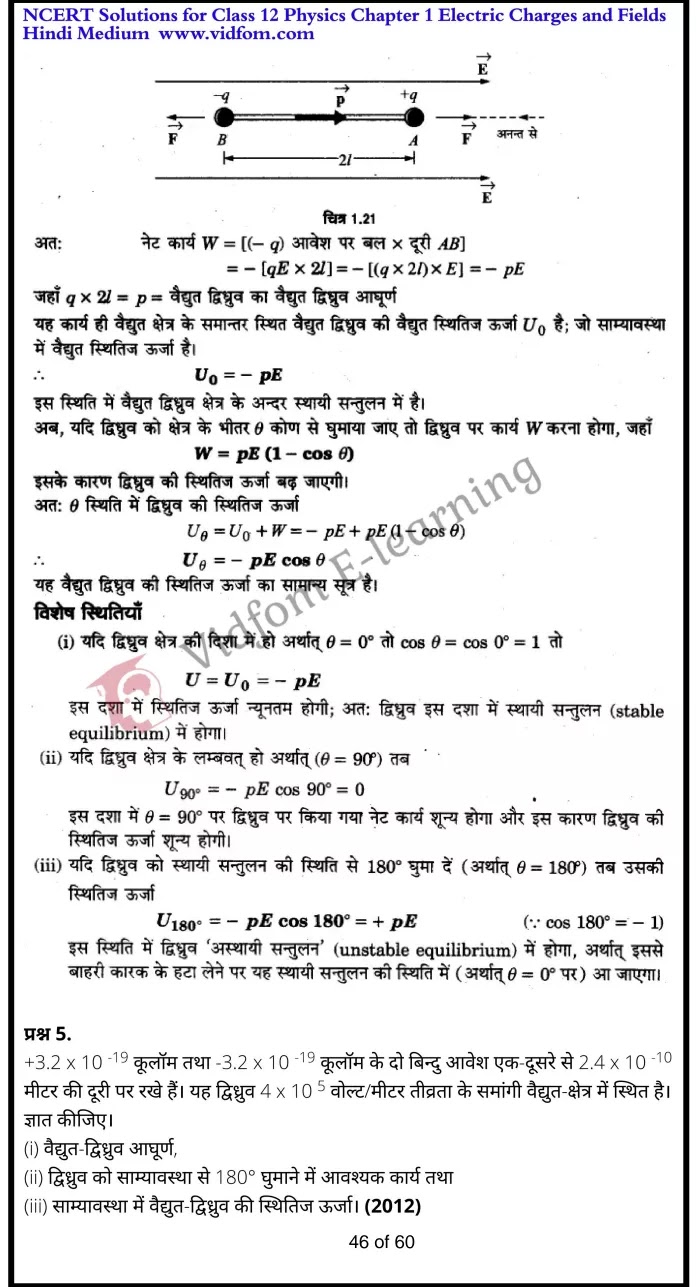 NCERT Solutions for Class 12 Physics Chapter 1 Electric Charges and Fields
Hindi Medium www.vidfom.com
E
-q p +q
F B A F अनन्त से
2l
E
चित्र 1.21
अतः नेट कार्य W = [(− q) आवेश पर बल × दूरी AB]
= − [qE × 2l] = − [(q × 2l) × E] = − pE
जहाँ q × 2l = p = वैद्युत द्विध्रुव का वैद्युत द्विध्रुव आघूर्ण
यह कार्य ही वैद्युत क्षेत्र के समान्तर स्थित वैद्युत द्विध्रुव की वैद्युत स्थितिज ऊर्जा U₀ है; जो साम्यावस्था
में वैद्युत स्थितिज ऊर्जा है।
∴ U₀ = − pE
इस स्थिति में वैद्युत द्विध्रुव क्षेत्र के अन्दर स्थायी सन्तुलन में है।
अब, यदि द्विध्रुव को क्षेत्र के भीतर θ कोण से घुमाया जाए तो द्विध्रुव पर कार्य W करना होगा, जहाँ
W = pE (1 − cos θ)
इसके कारण द्विध्रुव की स्थितिज ऊर्जा बढ़ जाएगी।
अतः θ स्थिति में द्विध्रुव की स्थितिज ऊर्जा
U_θ = U₀ + W = − pE + pE (1 − cos θ)
∴ U_θ = − pE cos θ
यह वैद्युत द्विध्रुव की स्थितिज ऊर्जा का सामान्य सूत्र है।
विशेष स्थितियाँ
(i) यदि द्विध्रुव क्षेत्र की दिशा में हो अर्थात् θ = 0° तो cos θ = cos 0° = 1 तो
U = U₀ = − pE
इस दशा में स्थितिज ऊर्जा न्यूनतम होगी; अतः द्विध्रुव इस दशा में स्थायी सन्तुलन (stable
equilibrium) में होगा।
(ii) यदि द्विध्रुव क्षेत्र के लम्बवत् हो अर्थात् (θ = 90°) तब
U₉₀° = − pE cos 90° = 0
इस दशा में θ = 90° पर द्विध्रुव पर किया गया नेट कार्य शून्य होगा और इस कारण द्विध्रुव की
स्थितिज ऊर्जा शून्य होगी।
(iii) यदि द्विध्रुव को स्थायी सन्तुलन की स्थिति से 180° घुमा दें (अर्थात् θ = 180°) तब उसकी
स्थितिज ऊर्जा
U₁₈₀° = − pE cos 180° = + pE (∵ cos 180° = − 1)
इस स्थिति में द्विध्रुव 'अस्थायी सन्तुलन' (unstable equilibrium) में होगा, अर्थात् इससे
बाहरी कारक के हटा लेने पर यह स्थायी सन्तुलन की स्थिति में (अर्थात् θ = 0° पर) आ जाएगा।
Vidfom E-learning
प्रश्न 5.
+3.2 x 10 ⁻¹⁹ कूलॉम तथा -3.2 x 10 ⁻¹⁹ कूलॉम के दो बिन्दु आवेश एक-दूसरे से 2.4 x 10 ⁻¹⁰
मीटर की दूरी पर रखे हैं। यह द्विध्रुव 4 x 10 ⁵ वोल्ट/मीटर तीव्रता के समांगी वैद्युत-क्षेत्र में स्थित है।
ज्ञात कीजिए।
(i) वैद्युत-द्विध्रुव आघूर्ण,
(ii) द्विध्रुव को साम्यावस्था से 180° घुमाने में आवश्यक कार्य तथा
(iii) साम्यावस्था में वैद्युत-द्विध्रुव की स्थितिज ऊर्जा। (2012)
46 of 60